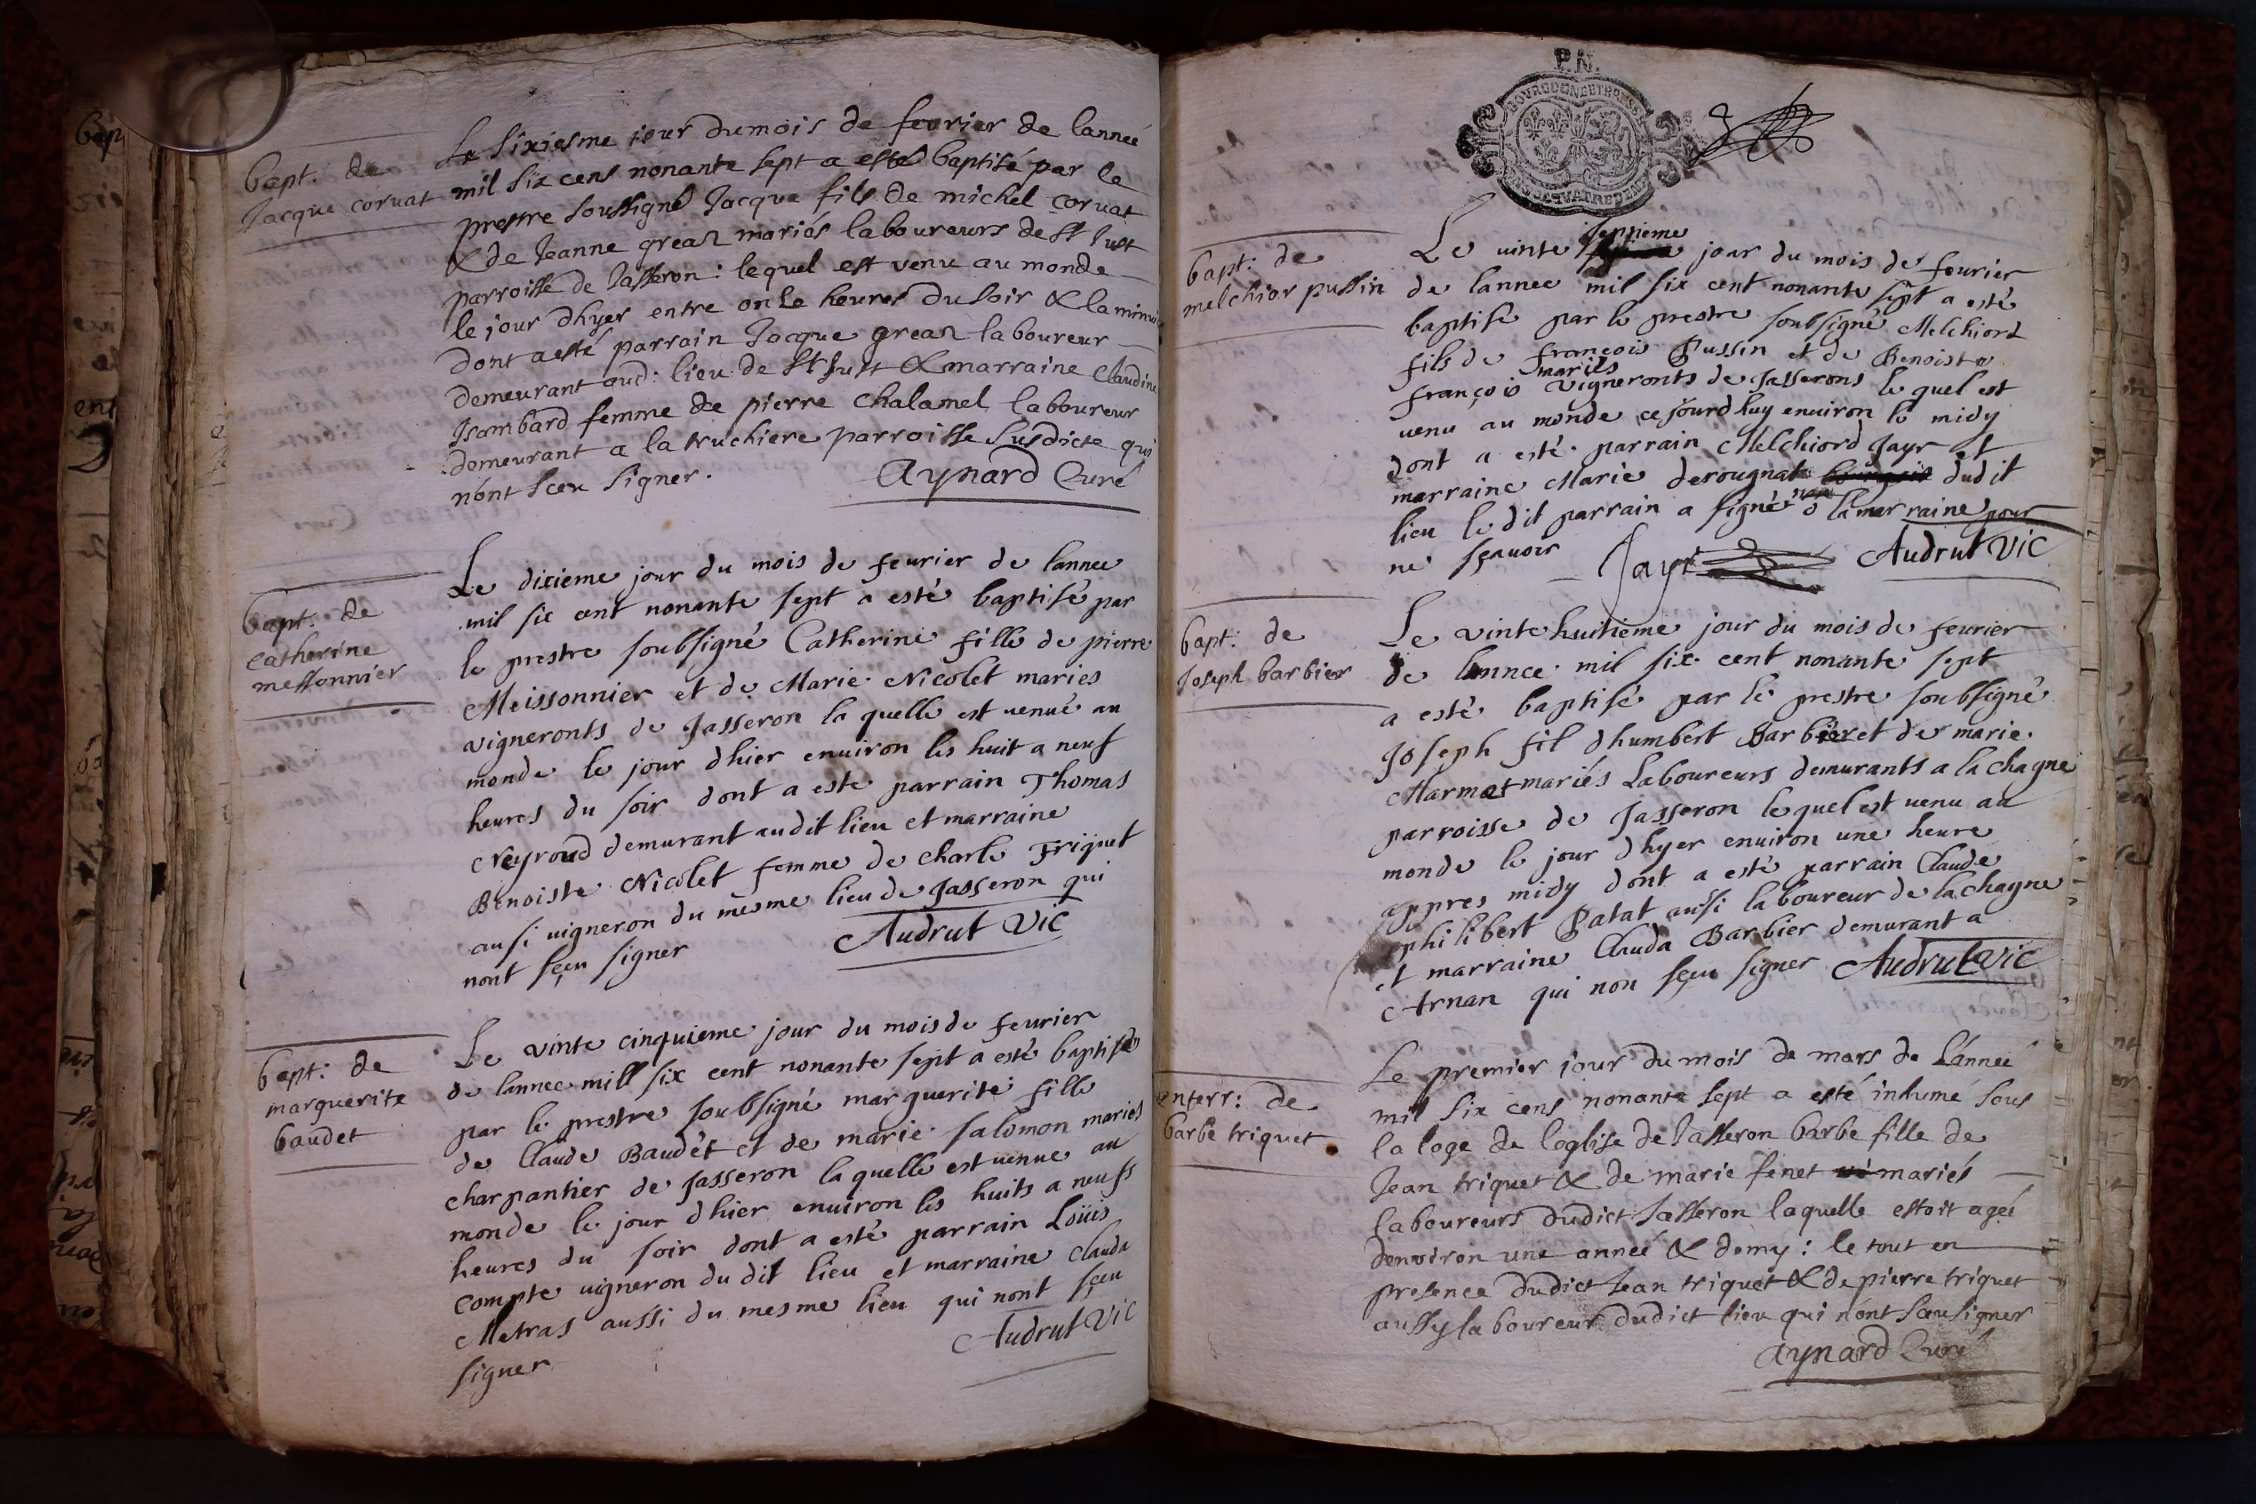 bapt: de
Jacque coruat
Le sixiesme iour dumois de feurier de lanneé
mil six cens nonante sept a esté baptisé par le
prestre soussigné Jacque fils de michel coruat
& de Jeanne grean mariés laboureurs de St Just
parroisse de Jasseron: lequel est venu au monde
le jour dhyer entre onze heures du soir & la minui
dont aesté parrain Jacque grean laboureur
demeurant aud: lieu de St Just & marraine Claudine
Jsombard femme de pierre chalamel laboureur
demeurant a la truchiere parroisse susdicte qui
n'ont sceu signer.
aynard Curé
bapt: de
catherine
messonnier
Le dixieme jour du mois de feurier de lannee
mil six cent nonante sept a esté baptisé par
le prestre soubsigné Catherine fille de pierre
Meissonnier et de Marie Nicolet maries
vigneronts de Jasseron la quelle est uenué au
monde le jour dhier enuiron les huit a neuf
heures du soir dont a este parrain Thomas
Neyroud demurant au dit lieu et marraine
Benoiste Nicolet femme de charle Friquet
ausi uigneron du mesme lieu de Jasseron qui
nont sçeu signer
Audrut Vic
bapt: de
marguerite
baudet
Le vinte cinquieme jour du mois de feurier
de lannee mill six cent nonante sept a esté baptisée
par le prestre soubsigné marguerite fille
de Claude Baudet et de marie salomon maries
charpantier de Jasseron la quelle est uenue au
monde le jour dhier enuiron les huits a neufs
heures du soir dont a esté parrain Loüis
compte uigneron du dit lieu et marraine Clauda
Metras aussi du mesme lieu qui nont sçeu
signer
Audrut Vic
P.N.
bapt: de
melchior pussin
Le uinte septieme jour du mois de feurier
de lannee mil six cent nonante sept a esté
baptise par le prestre soubsigné Melchiord
fils de françois Pussin et de Benoiste
françois mariés vigneronts de Jasserons le quel est
uenu au monde ce jourdhuy enuiron le midy
dont a esté parrain Melchiord Jayr et
marraine Marie derougnat dudit
lieu le dit parrain a signé la marraine pour
ne sçauoir
Jayr
Audrut Vic
bapt: de
Joseph barbier
Le vinte huitieme jour du mois de feurier
de lannee mil six cent nonante sept
a esté baptisé par le prestre soubsigné
Joseph fil dhumbert Barbier et de marie
Marmet mariés Laboureurs demurants a la chagne
parroisse de Jasseron le quel est uenu au
monde le jour dhyer enuiron une heure
appres midy dont a esté parrain Claude
philibert Patat ausi laboureur de la chagne
et marraine Clauda Barbier demurant a
Arnan qui non sçeu signer
Audrut Vic
enterr: de
barbe triquet
Le premier iour dumois de mars de L'anneé
mil six cens nonante sept a esté inhumé sous
la loge de l'eglise de Jasseron barbe fille de
Jean triquet & de marie fenet mariés
laboureurs dudict Jasseron laquelle estoit ageé
denuiron une anneé & demy: le tout en
presence dudict Jean triquet & de pierre triquet
aussy laboureur dudict lieu qui n'ont sceu signer
aynard Curé